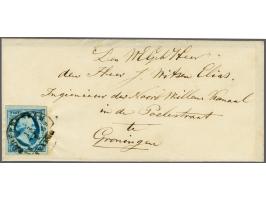 Den WelEd. Heer
den Heer J. Witsen Elias.
Ingenieur der Noord Willems Kanaal
in de Poelestraat
te
Groningen